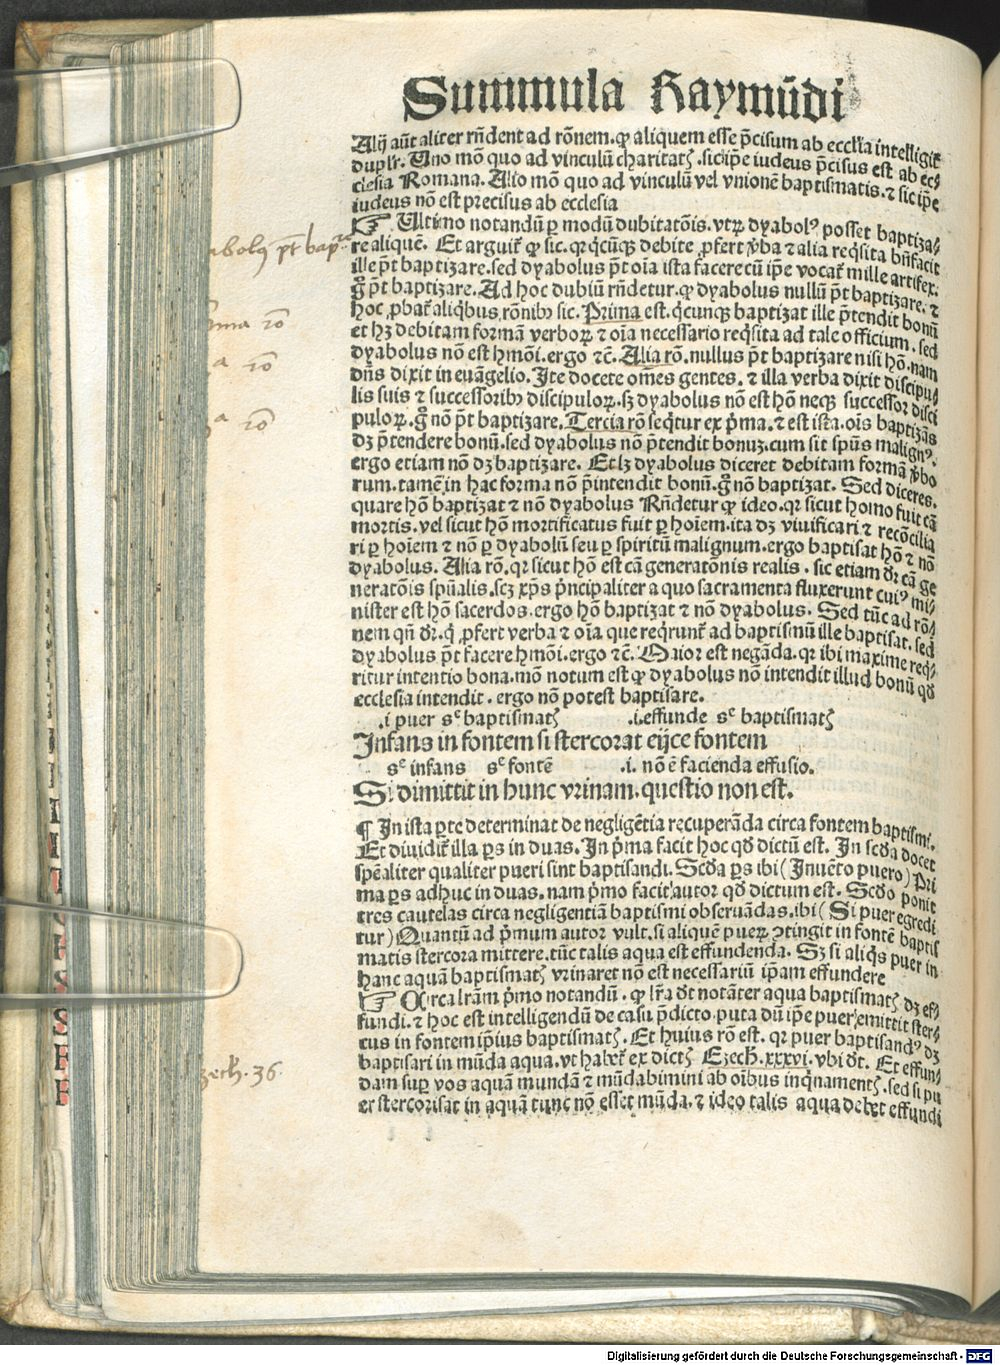 Summula Raymūdi
Alij aūt aliter rn̄dent ad rōnem. qꝫ aliquem esse p̄cisum ab ecclīa intelligit̄
duplr̄. Uno mō quo ad vinculū charitatꝭ. sic ip̄e iudeus p̄cisus est ab ec⸗
clesia Romana. Alio mō quo ad vinculū vel vnionē baptismatis. ⁊ sic ip̄e
iudeus nō est precisus ab ecclesia
☞ Ultimo notandū ꝑ modū dubitatōis. vtꝝ dyabolꝰ posset baptiza⸗
re aliquē. Et arguit̄ ꝙ sic. qꝛ q̄cūqꝫ debite ꝓfert v̄ba ⁊ alia req̄sita bn̄facit
ille p̄t baptizare. sed dyabolus p̄t oīa ista facere cū ip̄e vocat̄ mille artifex.
g̊ p̄t baptizare. Ad hoc dubiū rn̄detur. ꝙ dyabolus nullū p̄t baptizare. ⁊
hoc ꝓbat̄ aliq̄bus rōnibꝰ sic. Prima est. q̄cunqꝫ baptizat ille p̄tendit bonū
et hꝫ debitam formā verboꝝ ⁊ oīa necessario req̄sita ad tale officium. sed
dyabolus nō est hmōi. ergo ⁊c̄. Alia rō. nullus p̄t baptizare nisi hō. nam
dn̄s dixit in euāgelio. Ite docete om̄es gentes. ⁊ illa verba dixit discipu⸗
lis suis ⁊ successoribꝰ discipuloꝝ. sꝫ dyabolus nō est hō neqꝫ successor disci
puloꝝ. g̊ nō p̄t baptizare. Tercia rō seq̄tur ex p̄ma. ⁊ est ista. oīs baptizās
dꝫ p̄tendere bonū. sed dyabolus nō p̄tendit bonuꝫ. cum sit spūs malignꝰ.
ergo etiam nō dꝫ baptizare. Et lꝫ dyabolus diceret debitam formā v̄bo
rum. tamē in hac forma nō p̄intendit bonū. g̊ nō baptizat. Sed diceres.
quare hō baptizat ⁊ nō dyabolus Rn̄detur ꝙ ideo. qꝛ sicut homo fuit cā
mortis. vel sicut hō mortificatus fuit ꝑ hoīem. ita dꝫ viuificari ⁊ recōcilia
ri ꝑ hoīem ⁊ nō ꝑ dyabolū seu ꝑ spiritū malignum. ergo baptisat hō ⁊ nō
dyabolus. Alia rō. qꝛ sicut hō est cā generatōnis realis. sic etiam dr̄ cā ge
neratōis spūalis. scꝫ xp̄s p̄ncipaliter a quo sacramenta fluxerunt cuiꝰ mi⸗
nister est hō sacerdos. ergo hō baptizat ⁊ nō dyabolus. Sed tūc ad rō⸗
nem qn̄ dr̄. q̄ ꝓfert verba ⁊ oīa que req̄runt̄ ad baptismū ille baptisat. sed
dyabolus p̄t facere hmōi. ergo ⁊c̄. Maior est negāda. qꝛ ibi maxime req̄⸗
ritur intentio bona. mō notum est ꝙ dyabolus nō intendit illud bonū qd̄
ecclesia intendit. ergo nō potest baptisare.
.i puer sᶜ baptismatꝭ .i. effunde sᶜ baptismatꝭ
Infans in fontem si stercorat eijce fontem
sᶜ infans sᶜ fontē .i. nō ē facienda effusio.
Si dimittit in hunc vrinam. questio non est.
¶ In ista ꝑte determinat de negligētia recuperāda circa fontem baptismi.
Et diuidit̄ illa ꝑs in duas. In p̄ma facit hoc qd̄ dictū est. In scd̄a docet
spēaliter qualiter pueri sint baptisandi. Scd̄a ꝑs ibi (Inuēto puero) Pri
ma ꝑs adhuc in duas. nam p̄mo facit autor qd̄ dictum est. Scd̄o ponit
tres cautelas circa negligentiā baptismi obseruādas. ibi (Si puer egredi
tur) Quantū ad p̄mum autor vult. si aliquē pueꝝ ↄtingit in fontē baptis
matis stercora mittere. tūc talis aqua est effundenda. Sꝫ si aliq̄s puer in
hanc aquā baptismatꝭ vrinaret nō est necessariū ip̄am effundere
☞ Circa lr̄am p̄mo notandū. ꝙ lr̄a dt̄ notāter aqua baptismatꝭ dꝫ ef⸗
fundi. ⁊ hoc est intelligendū de casu p̄dicto. puta dū ip̄e puer emittit ster⸗
cus in fontem ip̄ius baptismatꝭ. Et huius rō est. qꝛ puer baptisandꝰ dꝫ
baptisari in mūda aqua. vt habet̄ ex dictꝭ Ezech̄. xxxvi. vbi dt̄. Et effun⸗
dam suꝑ vos aquā mundā ⁊ mūdabimini ab oībus inq̄namentꝭ. sed si pu
er stercorisat in aquā tunc nō esset mūda. ⁊ ideo talis aqua debet effundi
abolꝰ p̄t bap
ma rō
a rō
a rō
zech. 36.
Digitalisierung gefördert durch die Deutsche Forschungsgemeinschaft - DFG